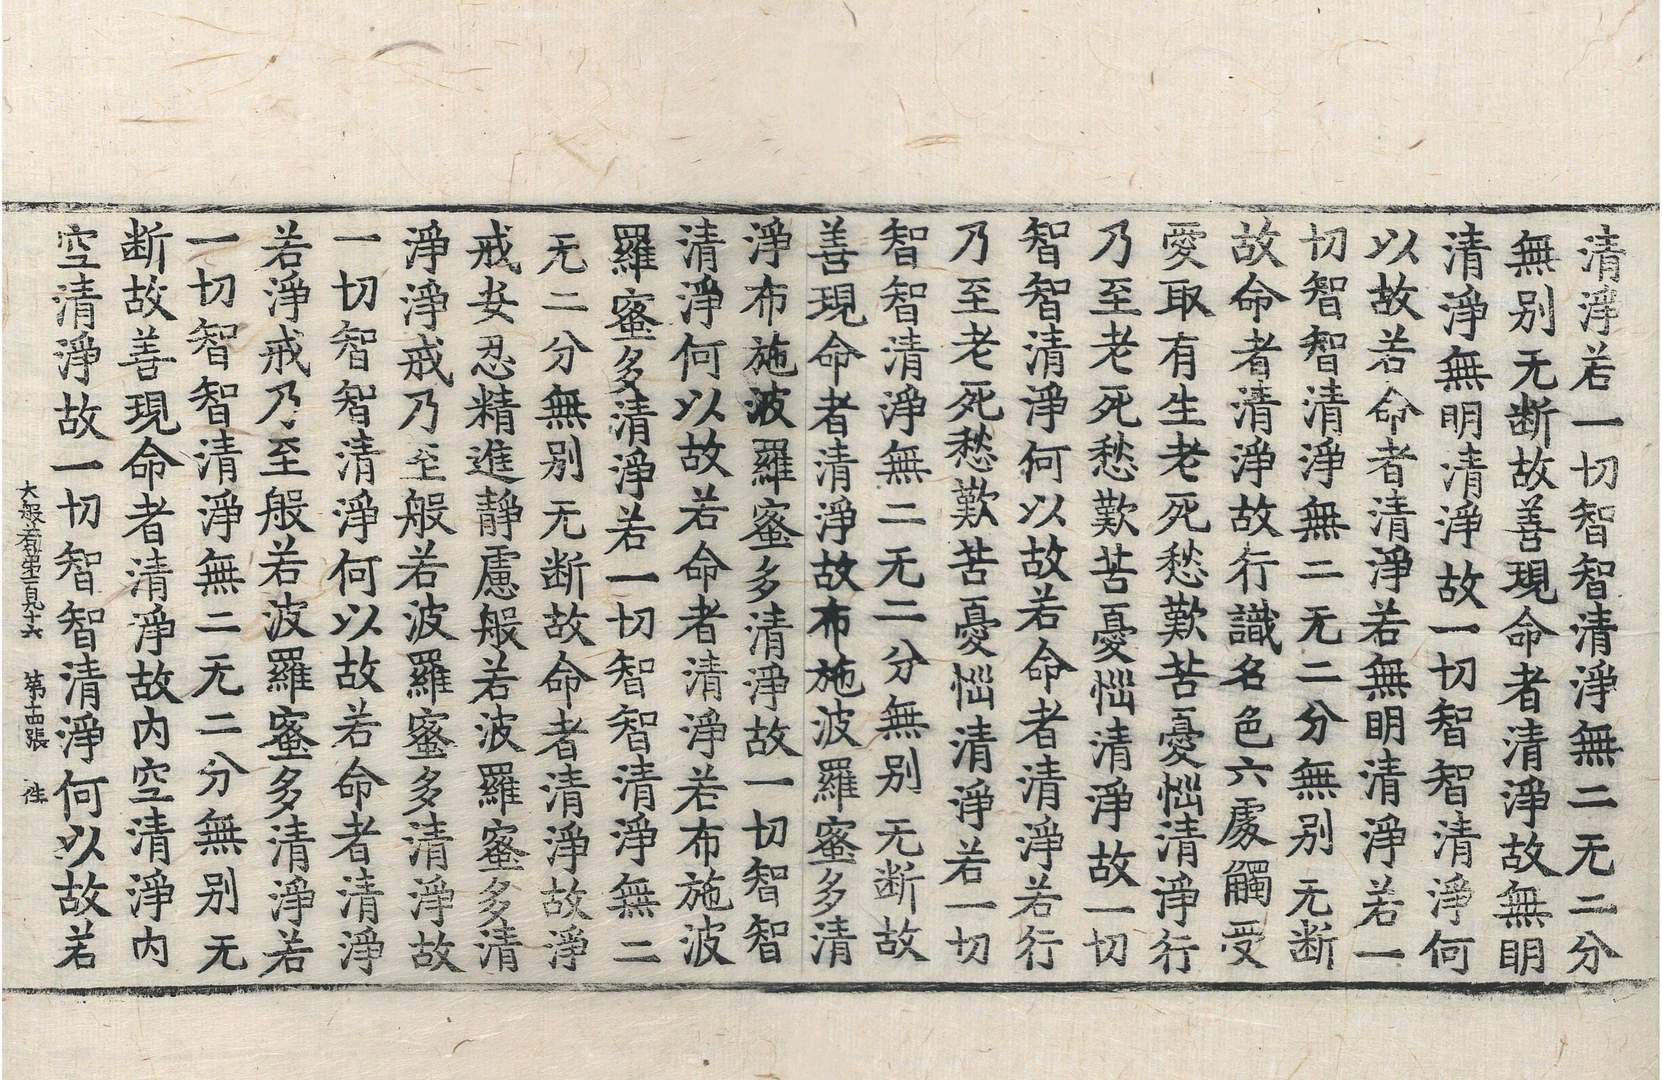 清淨若一切智智清淨無二无二分
無別无断故善現命者清淨故無明
清淨無明清淨故一切智智清淨何
以故若命者清淨若無明清淨若一
切智智清淨無二无二分無別无断
故命者清淨故行識名色六處觸受
愛取有生老死愁歎苦憂惱清淨行
乃至老死愁歎苦憂惱清淨故一切
智智清淨何以故若命者清淨若行
乃至老死愁歎苦憂惱清淨若一切
智智清淨無二无二分無別无断故
善現命者清淨故布施波羅蜜多清
淨布施波羅蜜多清淨故一切智智
清淨何以故若命者清淨若布施波
羅蜜多清淨若一切智智清淨無二
无二分無別无断故命者清淨故淨
戒安忍精進靜慮般若波羅蜜多清
淨淨戒乃至般若波羅蜜多清淨故
一切智智清淨何以故若命者清淨
若淨戒乃至般若波羅蜜多清淨若
一切智智清淨無二无二分無別无
断故善現命者清淨故内空清淨内
空清淨故一切智智清淨何以故若
大般若第二百八十六 第十四張 性